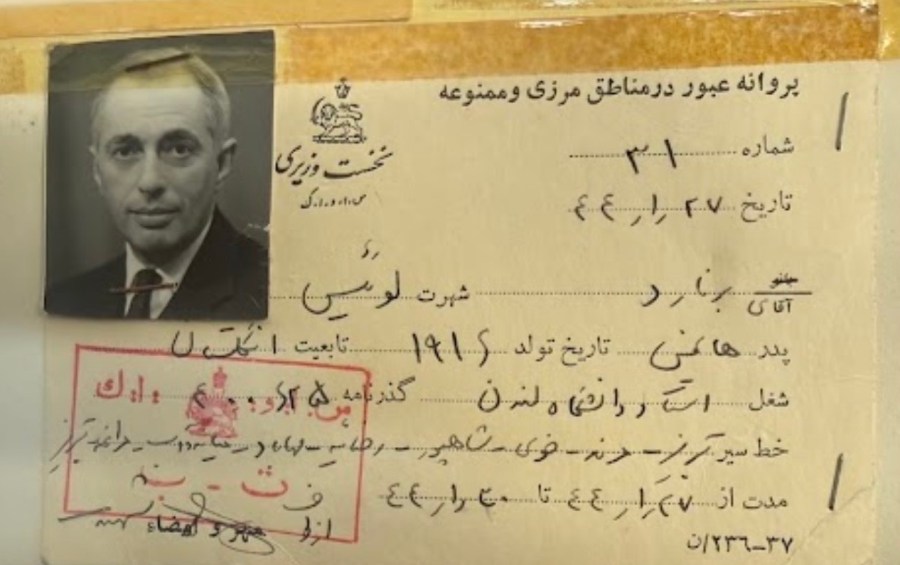 پروانه عبور درمناطق مرزی وممنوعه
نخست وزیری
س.ا.و.ا.ک
شماره ۳۱
تاریخ ۲۷ ر۱ر ٤٤
بانو
آقای برنارد شهرت لوئیس
پدر تاریخ تولد ۱۹۱٦ تابعیت انگلستان
شغل استاد دانشگاه لندن گذرنامه
خط سیر تبریز - مرند - خوی - شاهپور - رضائیه - مهاباد - میاندوآب - مراغه - تبریز
مدت از ۲۷ ر۱ر ٤٤ تا ۳۰ ر۱ر ٤٤
س. ا. و. ا. ك
مهر و امضاء
۳۷–۲۳٦/ن